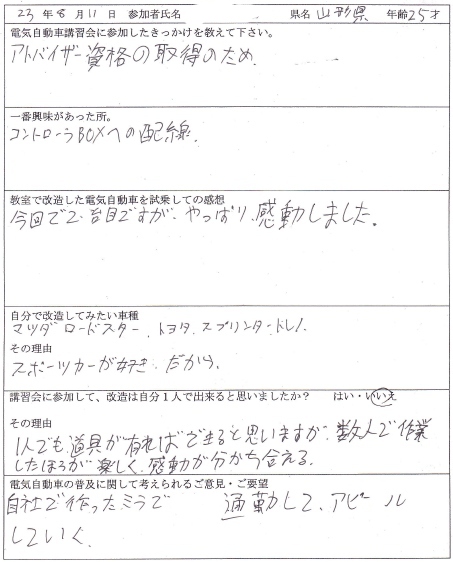 23 年 8 月 11 日 参加者氏名 県名 山形県 年齢25才
電気自動車講習会に参加したきっかけを教えて下さい。
アドバイザー資格の取得のため
一番興味があった所。
コントローラBOXへの配線.
教室で改造した電気自動車を試乗しての感想
今回で2台目ですが、やっぱり感動しました。
自分で改造してみたい車種
マツダロードスター、トヨタ、スプリンタートレノ
その理由
スポーツカーが好きだから。
講習会に参加して、改造は自分1人で出来ると思いましたか? はい・いいえ
その理由
1人でも道具が有ればできると思いますが、数人で作業
したほうが楽しく、感動が分かち合える。
電気自動車の普及に関して考えられるご意見・ご要望
自社で作ったミラで 通勤して、アピール
していく。